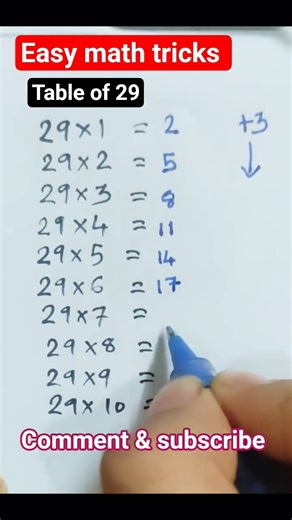 Easy math tricks
Table of 29
29 × 1 = 2 +3
29 × 2 = 5
29 × 3 = 8
29 × 4 = 11
29 × 5 = 14
29 × 6 = 17
29 × 7 =
29 × 8 =
29 × 9 =
29 × 10 =
Comment & subscribe